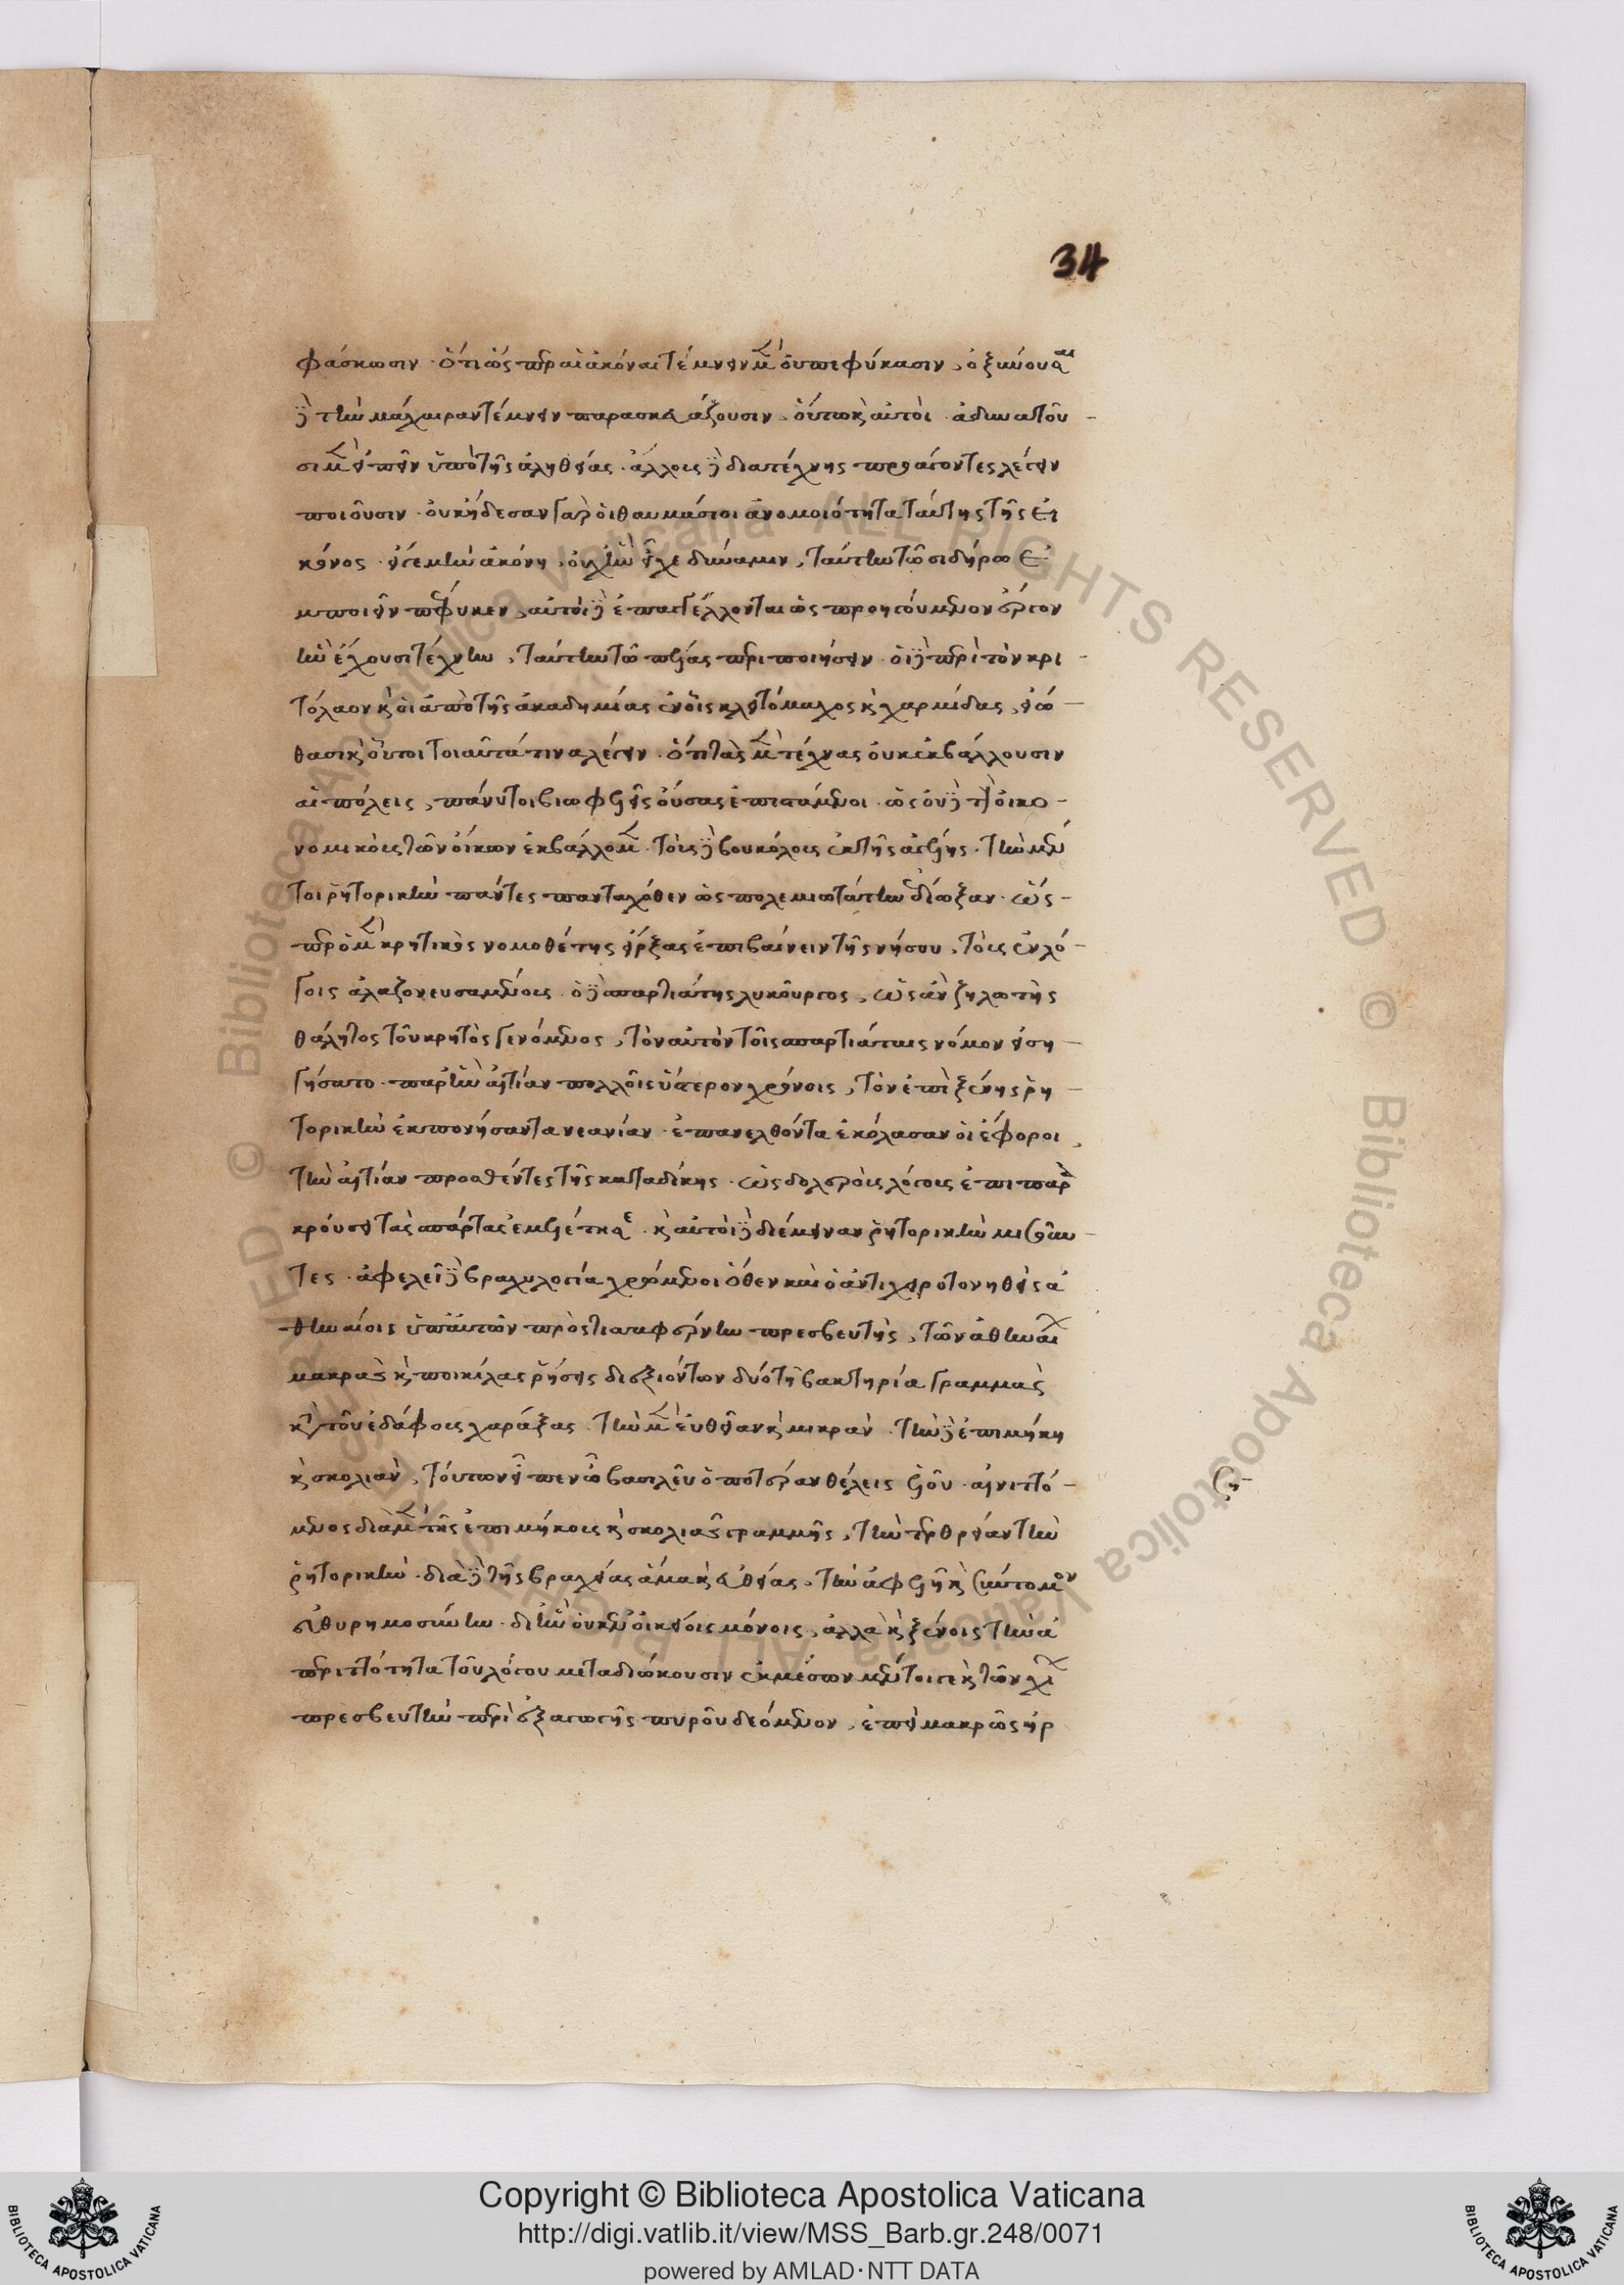 34
φάσκωσιν · ὅτι ὡς περ αἱ ἀκόναι τέμνειν μὲν οὐ πεφύκασιν, ὀξύνουσαι
δὲ τὴν μάχαιραν τέμνειν παρασκευάζουσιν · οὕτω κὶ αὐτοὶ ἀδυνατοῦ -
σι μὲν εἰπεῖν ὑπὸ τῆς ἀληθείας · ἄλλοις δὲ διὰ τέχνης προάγοντες λέγειν
ποιοῦσιν · οὐκ ᾔδεσαν γὰρ οἱ θαυμάσιοι ἀνομοιότητα ταύτης τῆς εἰ
κόνος · εἴγε μὴν ἀκόνη, οὐχ ἣν εἶχε δύναμιν, ταύτην τῷ σιδήρῳ ἐ
μποιεῖν πέφυκεν, αὐτοὶ δὲ ἐπαγγέλλονται ὡς προηγούμενον ἔργον
ἣν ἔχουσι τέχνην, ταύτην τῷ πέλας περιποιήσειν · οἱ δὲ περὶ τὸν κρι -
τόλαον κὶ οἱ ἀπὸ τῆς ἀκαδημίας ἐν οἷς κλειτόμαχος κὶ χαρμίδας, εἰώ -
θασι κὶ οὗτοι τοιαῦτά τινα λέγειν · ὅτι τὰς μὲν τέχνας οὐκ ἐκβάλλουσιν
αἱ πόλεις, πάνυ τοι βιωφελεῖς οὔσας ἐπιστάμενοι · ὡς οὐδὲ τοὺς οἰκο -
νομικοὺς τῶν οἴκων ἐκβάλλομεν · τοὺς δὲ βουκόλους ἐκ τῆς ἀγέλης · τὴν μέν
τοι ῥητορικὴν πάντες πανταχόθεν ὡς πολεμιωτάτην ἐδίωξαν · ὥς -
περ ὁ μὲν κρητικὸς νομοθέτης εἶρξας ἐπιβαίνειν τῆς νήσου, τοὺς ἐν λό -
γοις ἀλαζονευσαμένους · ὁ δὲ σπαρτιάτης λυκοῦργος, ὡς ἂν ζηλωτὴς
θάλητος τοῦ κρητὸς γενόμενος, τὸν αὐτὸν τοῖς σπαρτιάταις νόμον εἰση -
γήσατο · παρ' ἣν αἰτίαν πολλοῖς ὕστερον χρόνοις, τὸν ἐπὶ ξένης ῥη -
τορικὴν ἐκπονήσαντα νεανίαν · ἐπανελθόντα ἐκόλασαν οἱ ἔφοροι,
τὴν αἰτίαν προσθέντες τῆς καταδίκης · ὡς δολεροὺς λόγους ἐπὶ παρα
κρούσει τῆς σπάρτης ἐμελέτησε · κὶ αὐτοὶ δὲ διέμειναν ῥητορικὴν μισοῦν -
τες · ἀφελεῖ δὲ βραχυλογίᾳ χρώμενοι ὅθεν καὶ ὁ ἀντιχειροτονηθεὶς ἀ
θηναίοις ὑπ' αὐτῶν πρὸς τισσαφέρνην πρεσβευτὴς, τῶν ἀθηναίων
μακρὰς κὶ ποικίλας ῥήσεις διεξιόντων δύο τῇ βακτηρίᾳ γραμμὰς
κατὰ τοῦ ἐδάφους χαράξας · τὴν μὲν εὐθεῖαν κὶ μικρὰν · τὴν δὲ ἐπιμήκη
κὶ σκολιὰν, τούτων εἶπεν ὦ βασιλεῦ ὁποτέραν θέλεις ἑλοῦ · αἰνιττό -
μενος διὰ μὲν τῆς ἐπιμήκους κὶ σκολιᾶς γραμμῆς, τὴν τερθρείαν τὴν
ῥητορικὴν · διὰ δὲ τῆς βραχείας ἅμα κὶ εὐθείας, τὴν ἀφελῆ κὶ σύντομον
εὐθυρημοσύνην · δι' ἣν οὐκ ἐν οἰκείοις μόνοις, ἀλλὰ κὶ ξένοις τὴν ἀ
περιττότητα τοῦ λόγου μεταδιώκουσιν ἐκ μέσων μέντοι γε κὶ τῶν χίων
πρεσβευτὴν περὶ ἐξαγωγῆς πυροῦ δεόμενον, ἐπεὶ μακρῶς ἠρ
Copyright © Biblioteca Apostolica Vaticana
http://digi.vatlib.it/view/MSS_Barb.gr.248/0071
powered by AMLAD·NTT DATA